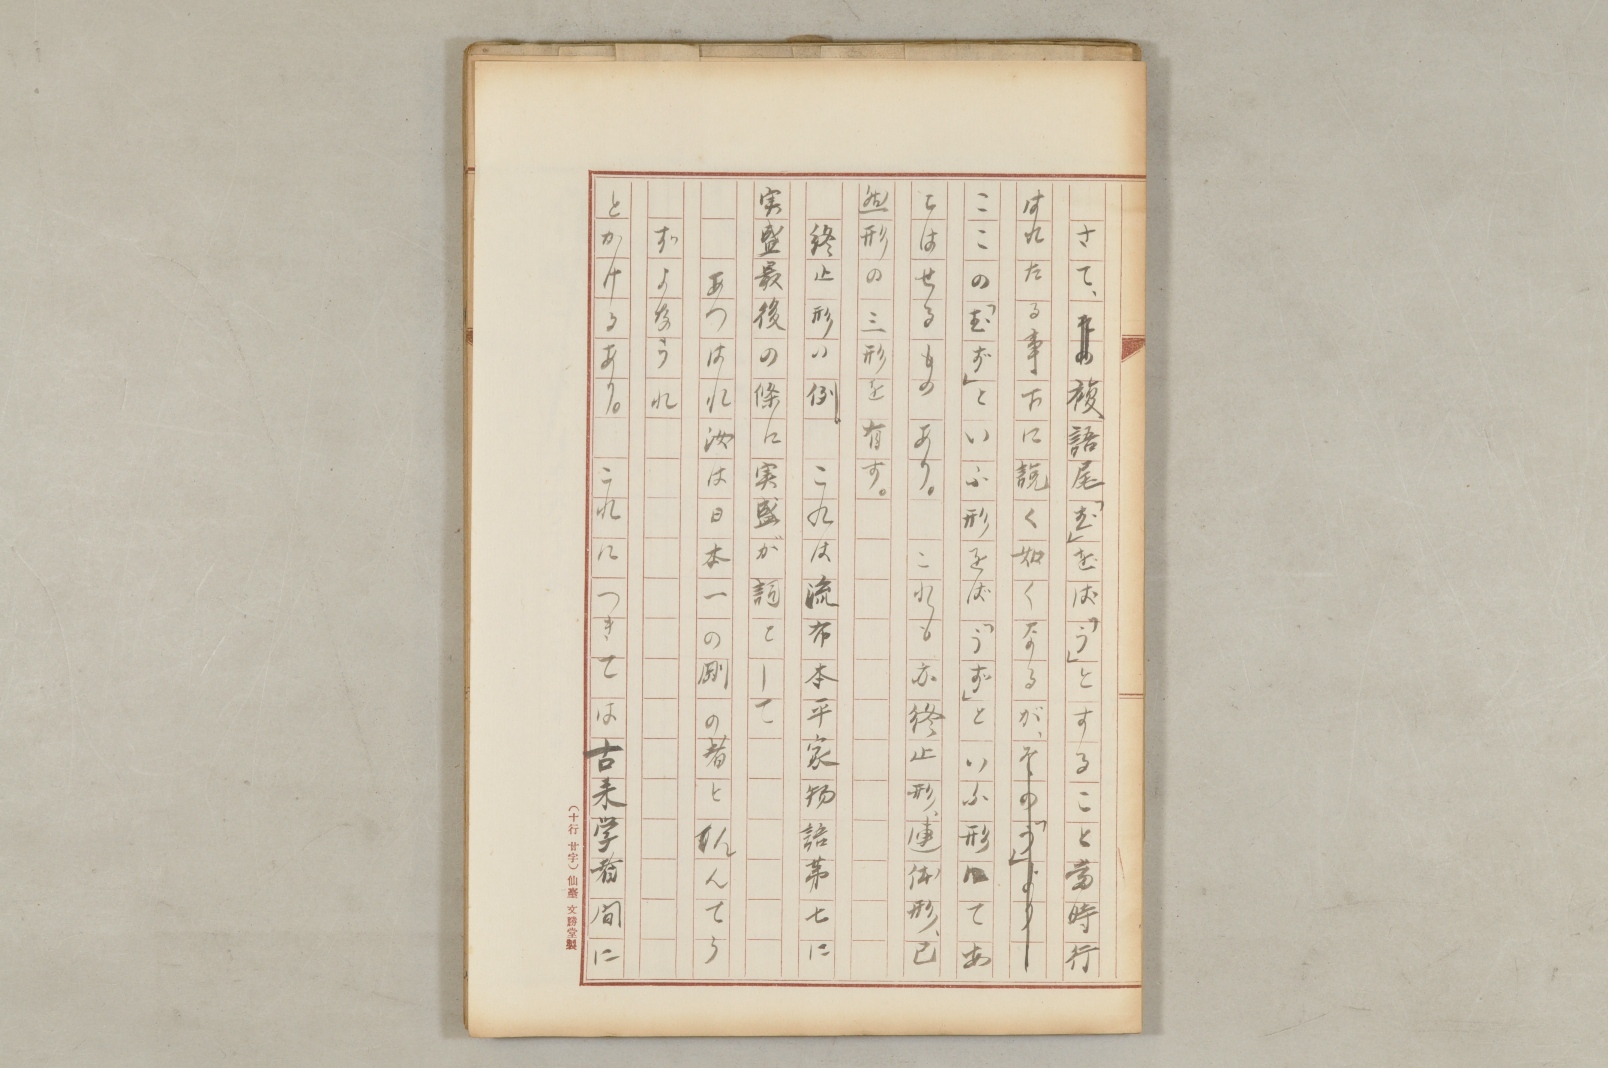 さて、複語尾「む」をば「う」とすること当時行
はれたる事下に説く如くなるが、その「う」より
ここの「むず」といふ形をば「うず」といふ形にてあ
らはせるものあり。これも亦終止形、連体形、已
然形の三形を有す。
終止形の例、これは流布本平家物語第七に
実盛最後の條に実盛が詞として
あつはれ汝は日本一の剛の者とくんでう
ずよなうれ
とかけるあり。これにつきては古来学者間に
(十行廿字)仙臺文勝堂製